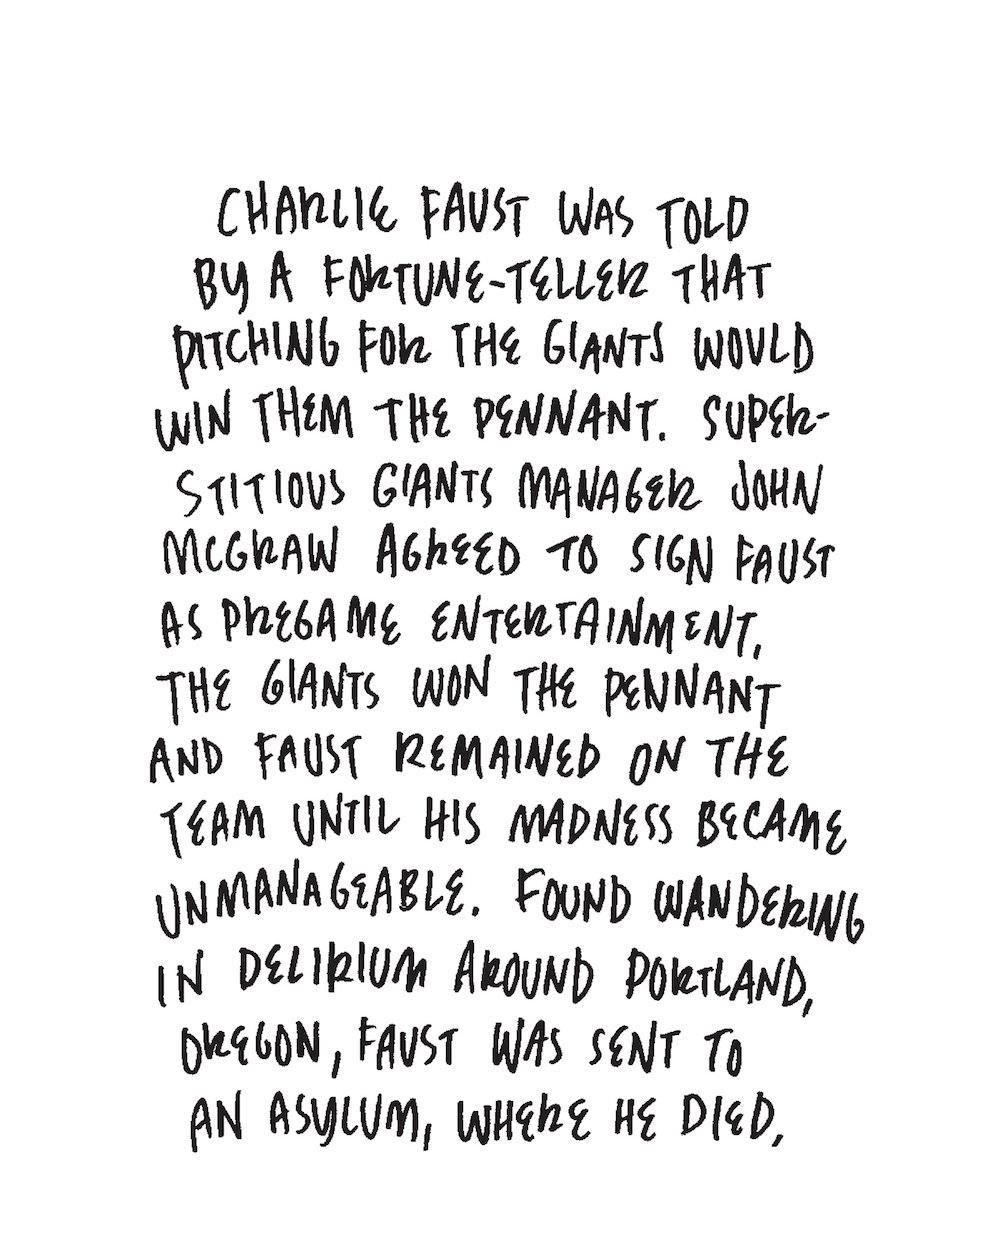 CHARLIE FAUST WAS TOLD
BY A FORTUNE-TELLER THAT
PITCHING FOR THE GIANTS WOULD
WIN THEM THE PENNANT. SUPER-
STITIOUS GIANTS MANAGER JOHN
MCGRAW AGREED TO SIGN FAUST
AS PREGAME ENTERTAINMENT.
THE GIANTS WON THE PENNANT
AND FAUST REMAINED ON THE
TEAM UNTIL HIS MADNESS BECAME
UNMANAGEABLE. FOUND WANDERING
IN DELIRIUM AROUND PORTLAND,
OREGON, FAUST WAS SENT TO
AN ASYLUM, WHERE HE DIED.